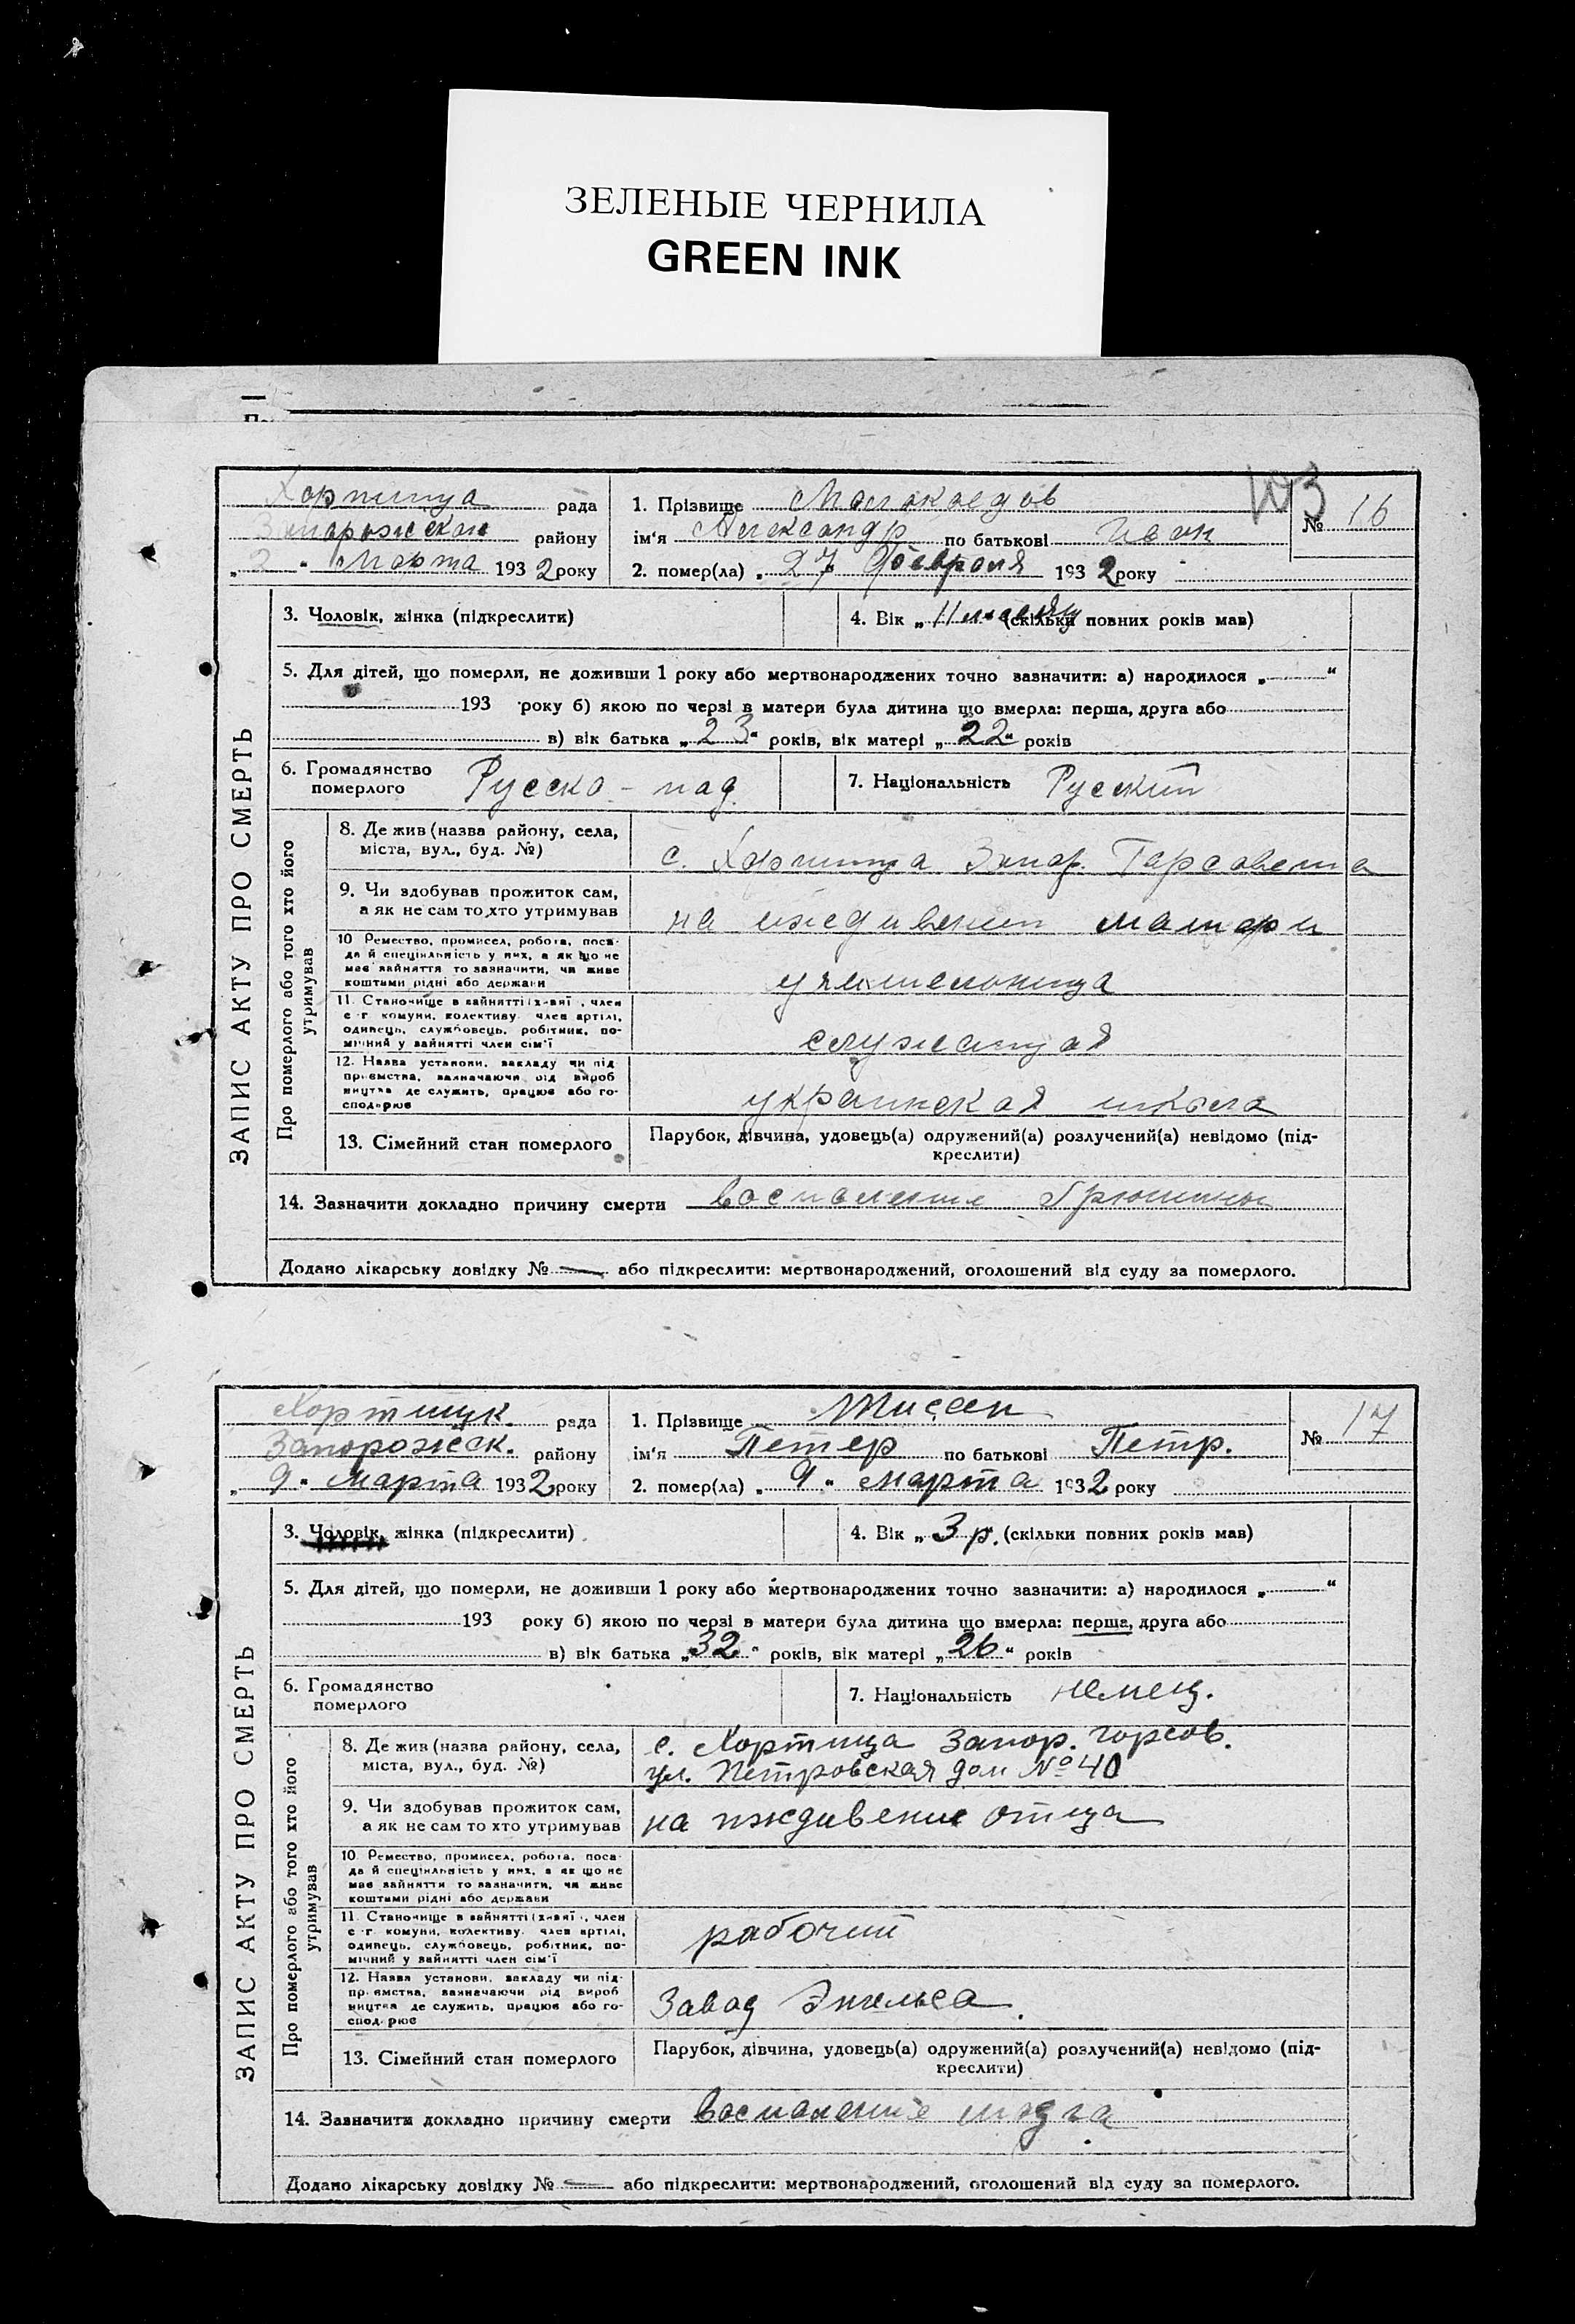 ЗЕЛЕНЫЕ ЧЕРНИЛА
GREEN INK
103
Хортица рада
района району
Марта 1932 року
1. Прізвище
№ 16
ім'я Александр по батькові Иван
2. помер(ла) „ 27 " Февраля 1932 року
ЗАПИС АКТУ ПРО СМЕРТЬ
3. Чоловік, жінка (підкреслити)
4. Вік „ 11 месяц (скільки повних років мав)
5. Для дітей, що померли, не доживши 1 року або мертвонароджених точно зазначити: а) народилося „ "
193 року б) якою по черзі в матери була дитина що вмерла: перша, друга або
в) вік батька „ 23 " років, вік матері „ 22 " років
6. Громадянство померлого Русско-под.
7. Національність Русский
Про померлого або того хто його утримував
8. Де жив (назва району, села, міста, вул., буд. №)
с. Хортица Запор. Горсовета
9. Чи здобував прожиток сам, а як не сам то хто утримував
на иждивении матери
10 Ремество, промисел, робота, посада й спеціяльність у них, а як що не має зайняття то зазначити, чи живе коштами рідні або держави
учительница
11. Становище в зайнятті член с-г комуни, колективу член артілі, одинець, службовець, робітник, помічний у зайнятті член сім'ї
служащая
12. Назва установи, закладу чи підприємства, зазначаючи рід виробництва де служить, працює або господарює
украинская школа
13. Сімейний стан померлого
Парубок, дівчина, удовець(а) одружений(а) розлучений(а) невідомо (підкреслити)
14. Зазначити докладно причину смерти воспаление брюшины
Додано лікарську довідку № — або підкреслити: мертвонароджений, оголошений від суду за померлого.
Хортицк. рада
Запорожск. району
„ 9 " Марта 1932 року
1. Прізвище Тиссен
№ 17
ім'я Петер по батькові Петр.
2. помер(ла) „ 9 " марта 1932 року
ЗАПИС АКТУ ПРО СМЕРТЬ
3. Чоловік, жінка (підкреслити)
4. Вік „ 3 р. (скільки повних років мав)
5. Для дітей, що померли, не доживши 1 року або мертвонароджених точно зазначити: а) народилося „ "
193 року б) якою по черзі в матери була дитина що вмерла: перша, друга або
в) вік батька „ 32 " років, вік матері „ 26 " років
6. Громадянство померлого
7. Національність немец.
Про померлого або того хто його утримував
8. Де жив (назва району, села, міста, вул., буд. №)
с. Хортица Запор. горсов.
ул. Петровская дом № 40
9. Чи здобував прожиток сам, а як не сам то хто утримував
на иждивение отца
10. Ремество, промисел, робота, посада й спеціяльність у них, а як що не має зайняття то зазначити, чи живе коштами рідні або держави
11. Становище в зайнятті член с-г комуни, колективу член артілі, одинець, службовець, робітник, помічний у зайнятті член сім'ї
рабочий
12. Назва установи, закладу чи підприємства, зазначаючи рід виробництва де служить, працює або господарює
Завод Энгельса.
13. Сімейний стан померлого
Парубок, дівчина, удовець(а) одружений(а) розлучений(а) невідомо (підкреслити)
14. Зазначити докладно причину смерти воспаление мозга
Додано лікарську довідку № — або підкреслити: мертвонароджений, оголошений від суду за померлого.